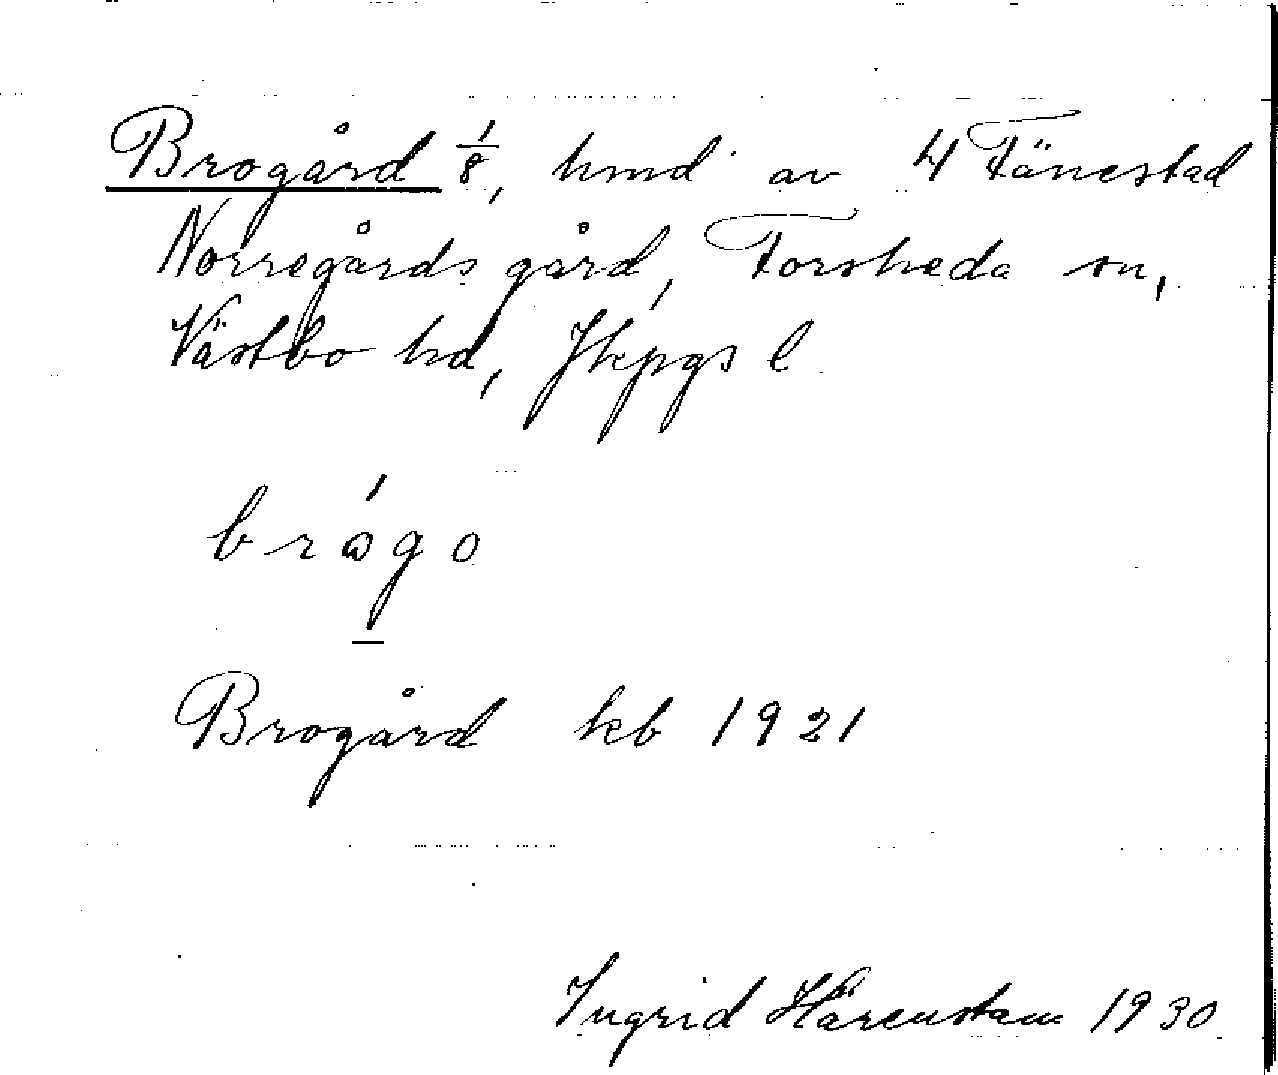 Brogård 1/8, hmd av 4 Fänestad
Norregårds gård, Forsheda sn,
Västbo hd, Jkpgs l
brågo
Brogård kb 1921
Ingrid Härenstam 1930